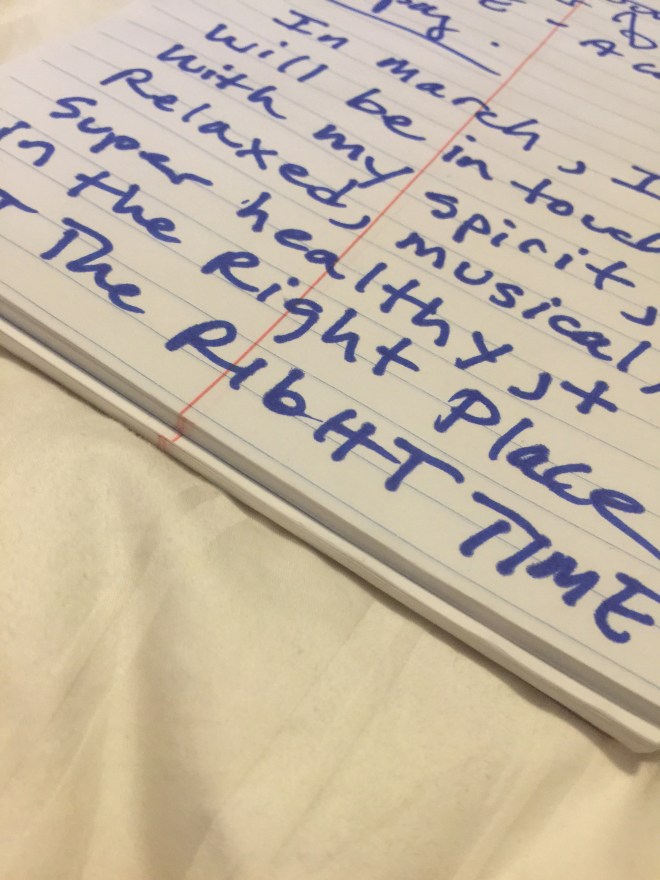 pay.
E - A
In march, I
will be in touch
with my spirit,
Relaxed, musical,
Super healthy, +
In the Right Place
T The RIGHT TIME